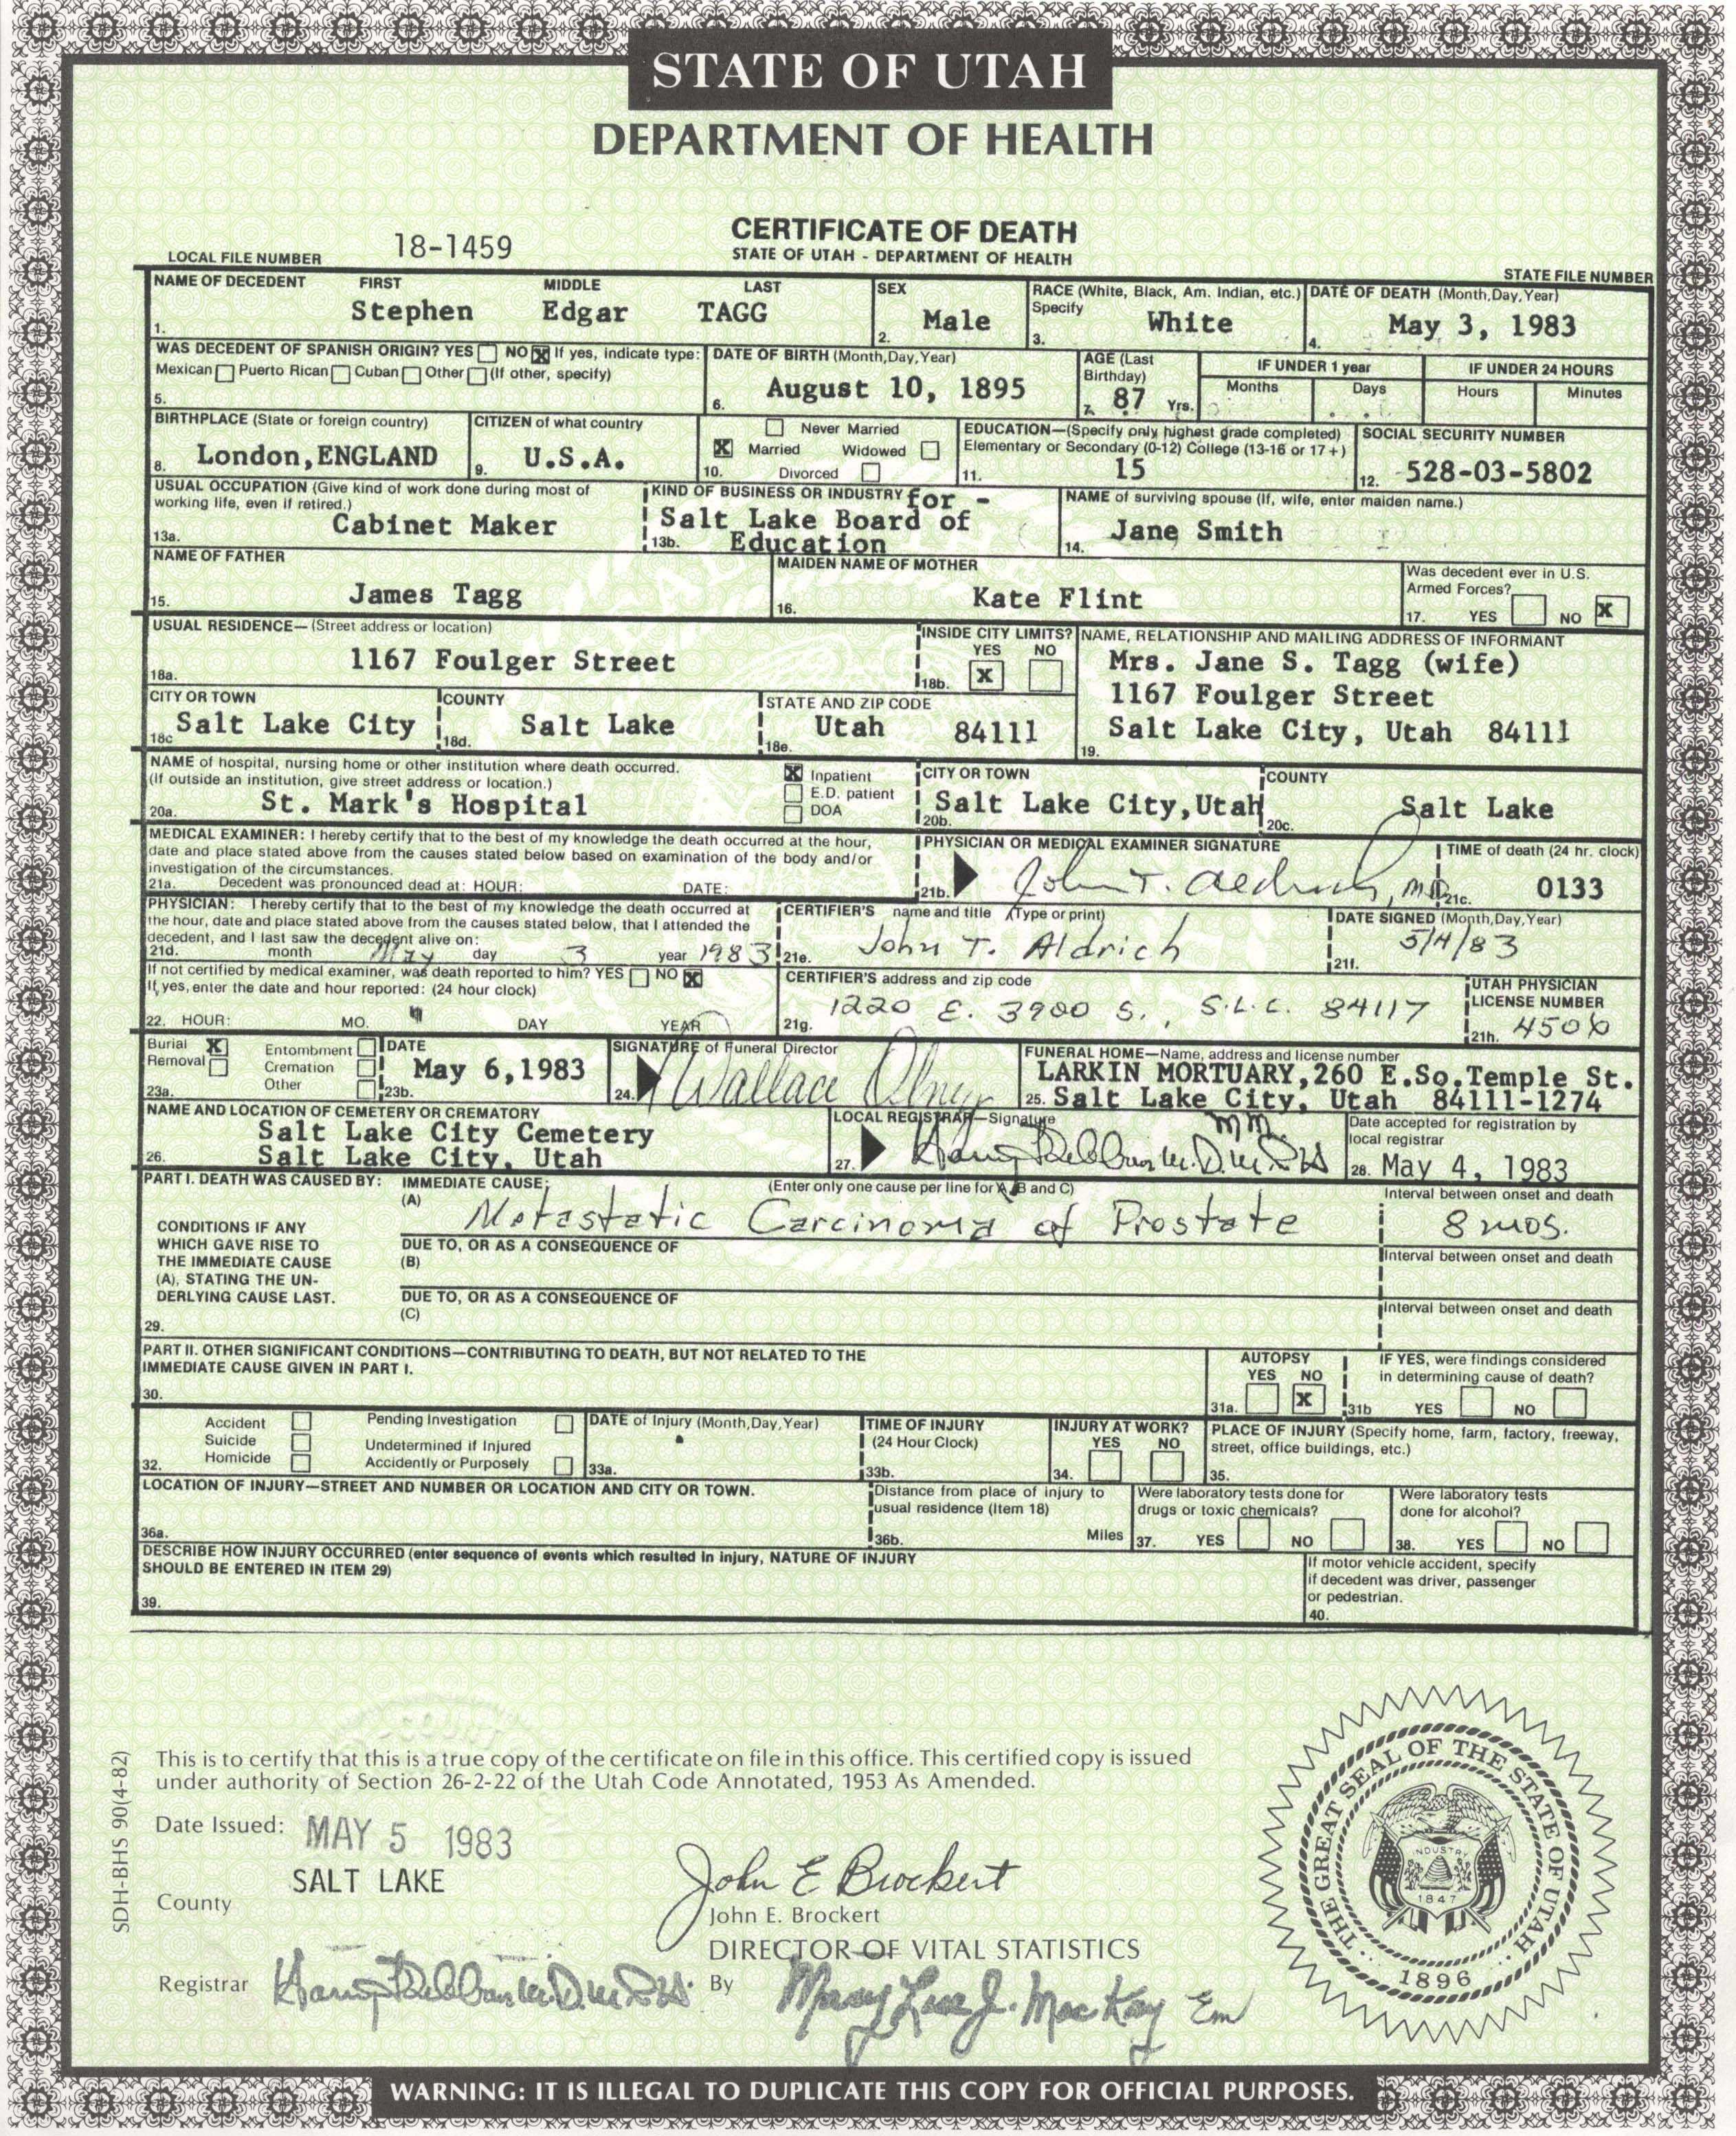 STATE OF UTAH
DEPARTMENT OF HEALTH
CERTIFICATE OF DEATH
STATE OF UTAH - DEPARTMENT OF HEALTH
LOCAL FILE NUMBER 18-1459
STATE FILE NUMBER
NAME OF DECEDENT FIRST MIDDLE LAST
1. Stephen Edgar TAGG
SEX
2. Male
RACE (White, Black, Am. Indian, etc.) Specify
3. White
DATE OF DEATH (Month,Day,Year)
4. May 3, 1983
WAS DECEDENT OF SPANISH ORIGIN? YES NO X If yes, indicate type:
Mexican Puerto Rican Cuban Other (If other, specify)
5.
DATE OF BIRTH (Month,Day,Year)
6. August 10, 1895
AGE (Last Birthday)
7. 87 Yrs.
IF UNDER 1 year
Months Days
IF UNDER 24 HOURS
Hours Minutes
BIRTHPLACE (State or foreign country)
8. London,ENGLAND
CITIZEN of what country
9. U.S.A.
Never Married
X Married Widowed
10. Divorced
EDUCATION—(Specify only highest grade completed)
Elementary or Secondary (0-12) College (13-16 or 17+)
11. 15
SOCIAL SECURITY NUMBER
12. 528-03-5802
USUAL OCCUPATION (Give kind of work done during most of
working life, even if retired.)
13a. Cabinet Maker
KIND OF BUSINESS OR INDUSTRY for -
Salt Lake Board of
13b. Education
NAME of surviving spouse (If, wife, enter maiden name.)
14. Jane Smith
NAME OF FATHER
15. James Tagg
MAIDEN NAME OF MOTHER
16. Kate Flint
Was decedent ever in U.S.
Armed Forces?
17. YES NO X
USUAL RESIDENCE— (Street address or location)
18a. 1167 Foulger Street
INSIDE CITY LIMITS?
YES NO
18b. X
NAME, RELATIONSHIP AND MAILING ADDRESS OF INFORMANT
Mrs. Jane S. Tagg (wife)
1167 Foulger Street
Salt Lake City, Utah 84111
19.
CITY OR TOWN
18c Salt Lake City
COUNTY
18d. Salt Lake
STATE AND ZIP CODE
18e. Utah 84111
NAME of hospital, nursing home or other institution where death occurred.
(If outside an institution, give street address or location.)
20a. St. Mark's Hospital
X Inpatient
E.D. patient
DOA
CITY OR TOWN
20b. Salt Lake City,Utah
COUNTY
20c. Salt Lake
MEDICAL EXAMINER: I hereby certify that to the best of my knowledge the death occurred at the hour,
date and place stated above from the causes stated below based on examination of the body and/or
investigation of the circumstances.
21a. Decedent was pronounced dead at: HOUR: DATE:
PHYSICIAN OR MEDICAL EXAMINER SIGNATURE
21b. John T. Aldrich, M.D.
TIME of death (24 hr. clock)
21c. 0133
PHYSICIAN: I hereby certify that to the best of my knowledge the death occurred at
the hour, date and place stated above from the causes stated below, that I attended the
decedent, and I last saw the decedent alive on:
21d. month May day 3 year 1983
CERTIFIER'S name and title (Type or print)
21e. John T. Aldrich
DATE SIGNED (Month,Day,Year)
5/4/83
21f.
If not certified by medical examiner, was death reported to him? YES NO X
If, yes, enter the date and hour reported: (24 hour clock)
22. HOUR: MO. DAY YEAR
CERTIFIER'S address and zip code
21g. 1220 E. 3900 S., S.L.C. 84117
UTAH PHYSICIAN
LICENSE NUMBER
21h. 4506
Burial X Entombment
Removal Cremation
23a. Other
DATE
23b. May 6,1983
SIGNATURE of Funeral Director
24. Wallace
FUNERAL HOME—Name, address and license number
LARKIN MORTUARY,260 E.So.Temple St.
25. Salt Lake City, Utah 84111-1274
NAME AND LOCATION OF CEMETERY OR CREMATORY
Salt Lake City Cemetery
26. Salt Lake City, Utah
LOCAL REGISTRAR—Signature
27.
Date accepted for registration by
local registrar
28. May 4, 1983
PART I. DEATH WAS CAUSED BY: IMMEDIATE CAUSE: (Enter only one cause per line for A, B and C)
(A) Metastatic Carcinoma of Prostate
Interval between onset and death
8 mos.
CONDITIONS IF ANY
WHICH GAVE RISE TO
THE IMMEDIATE CAUSE
(A), STATING THE UN-
DERLYING CAUSE LAST.
29.
DUE TO, OR AS A CONSEQUENCE OF
(B)
Interval between onset and death
DUE TO, OR AS A CONSEQUENCE OF
(C)
Interval between onset and death
PART II. OTHER SIGNIFICANT CONDITIONS—CONTRIBUTING TO DEATH, BUT NOT RELATED TO THE
IMMEDIATE CAUSE GIVEN IN PART I.
30.
AUTOPSY
YES NO
31a. X
IF YES, were findings considered
in determining cause of death?
31b YES NO
Accident Pending Investigation
Suicide Undetermined if Injured
32. Homicide Accidently or Purposely
DATE of Injury (Month,Day,Year)
33a.
TIME OF INJURY
(24 Hour Clock)
33b.
INJURY AT WORK?
YES NO
34.
PLACE OF INJURY (Specify home, farm, factory, freeway,
street, office buildings, etc.)
35.
LOCATION OF INJURY—STREET AND NUMBER OR LOCATION AND CITY OR TOWN.
36a.
Distance from place of injury to
usual residence (Item 18)
36b. Miles
Were laboratory tests done for
drugs or toxic chemicals?
37. YES NO
Were laboratory tests
done for alcohol?
38. YES NO
DESCRIBE HOW INJURY OCCURRED (enter sequence of events which resulted in injury, NATURE OF INJURY
SHOULD BE ENTERED IN ITEM 29)
39.
If motor vehicle accident, specify
if decedent was driver, passenger
or pedestrian.
40.
SDH-BHS 90(4-82)
This is to certify that this is a true copy of the certificate on file in this office. This certified copy is issued
under authority of Section 26-2-22 of the Utah Code Annotated, 1953 As Amended.
Date Issued: MAY 5 1983
SALT LAKE
County
John E Brockert
John E. Brockert
DIRECTOR OF VITAL STATISTICS
Registrar
By Mary Lou J. MacKay Em
THE GREAT SEAL OF THE STATE OF UTAH
INDUSTRY
1847
1896
WARNING: IT IS ILLEGAL TO DUPLICATE THIS COPY FOR OFFICIAL PURPOSES.